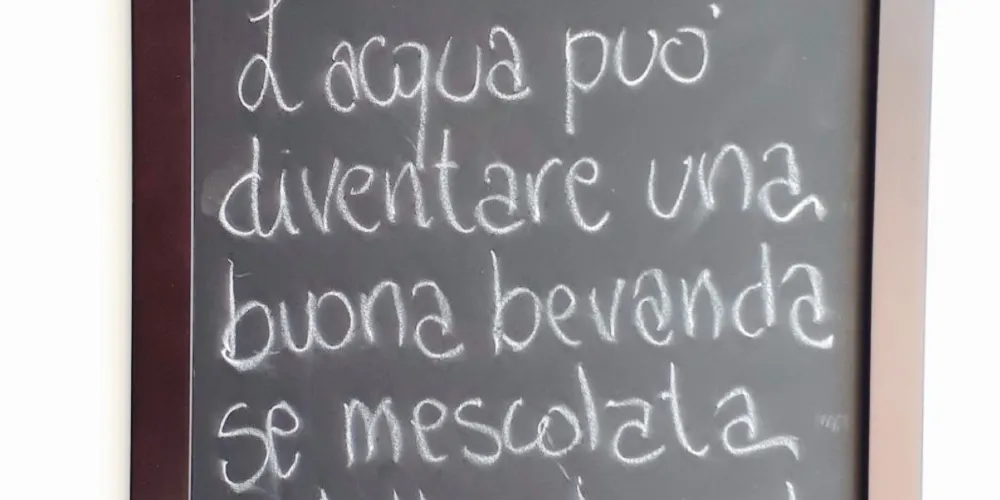 L'acqua può
diventare una
buona bevanda
se mescolata